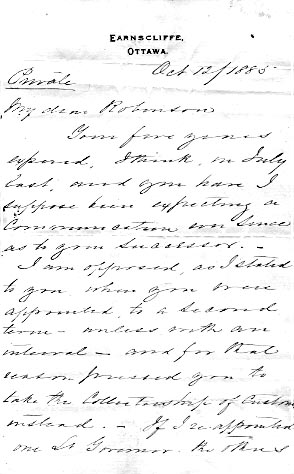 EARNSCLIFFE,
OTTAWA.
Oct 12/1885
Private
My dear Robinson
Your five years
expired, I think, in July
last, and you have I
suppose been expecting a
Communication ever since
as to your successor. –
I am opposed, as I stated
to you when you were
appointed, to a second
term – unless with an
interval – and for that
reason pressed you to
take the Collectorship of Customs
instead. – If I re appointed
one Lt Governor. the others